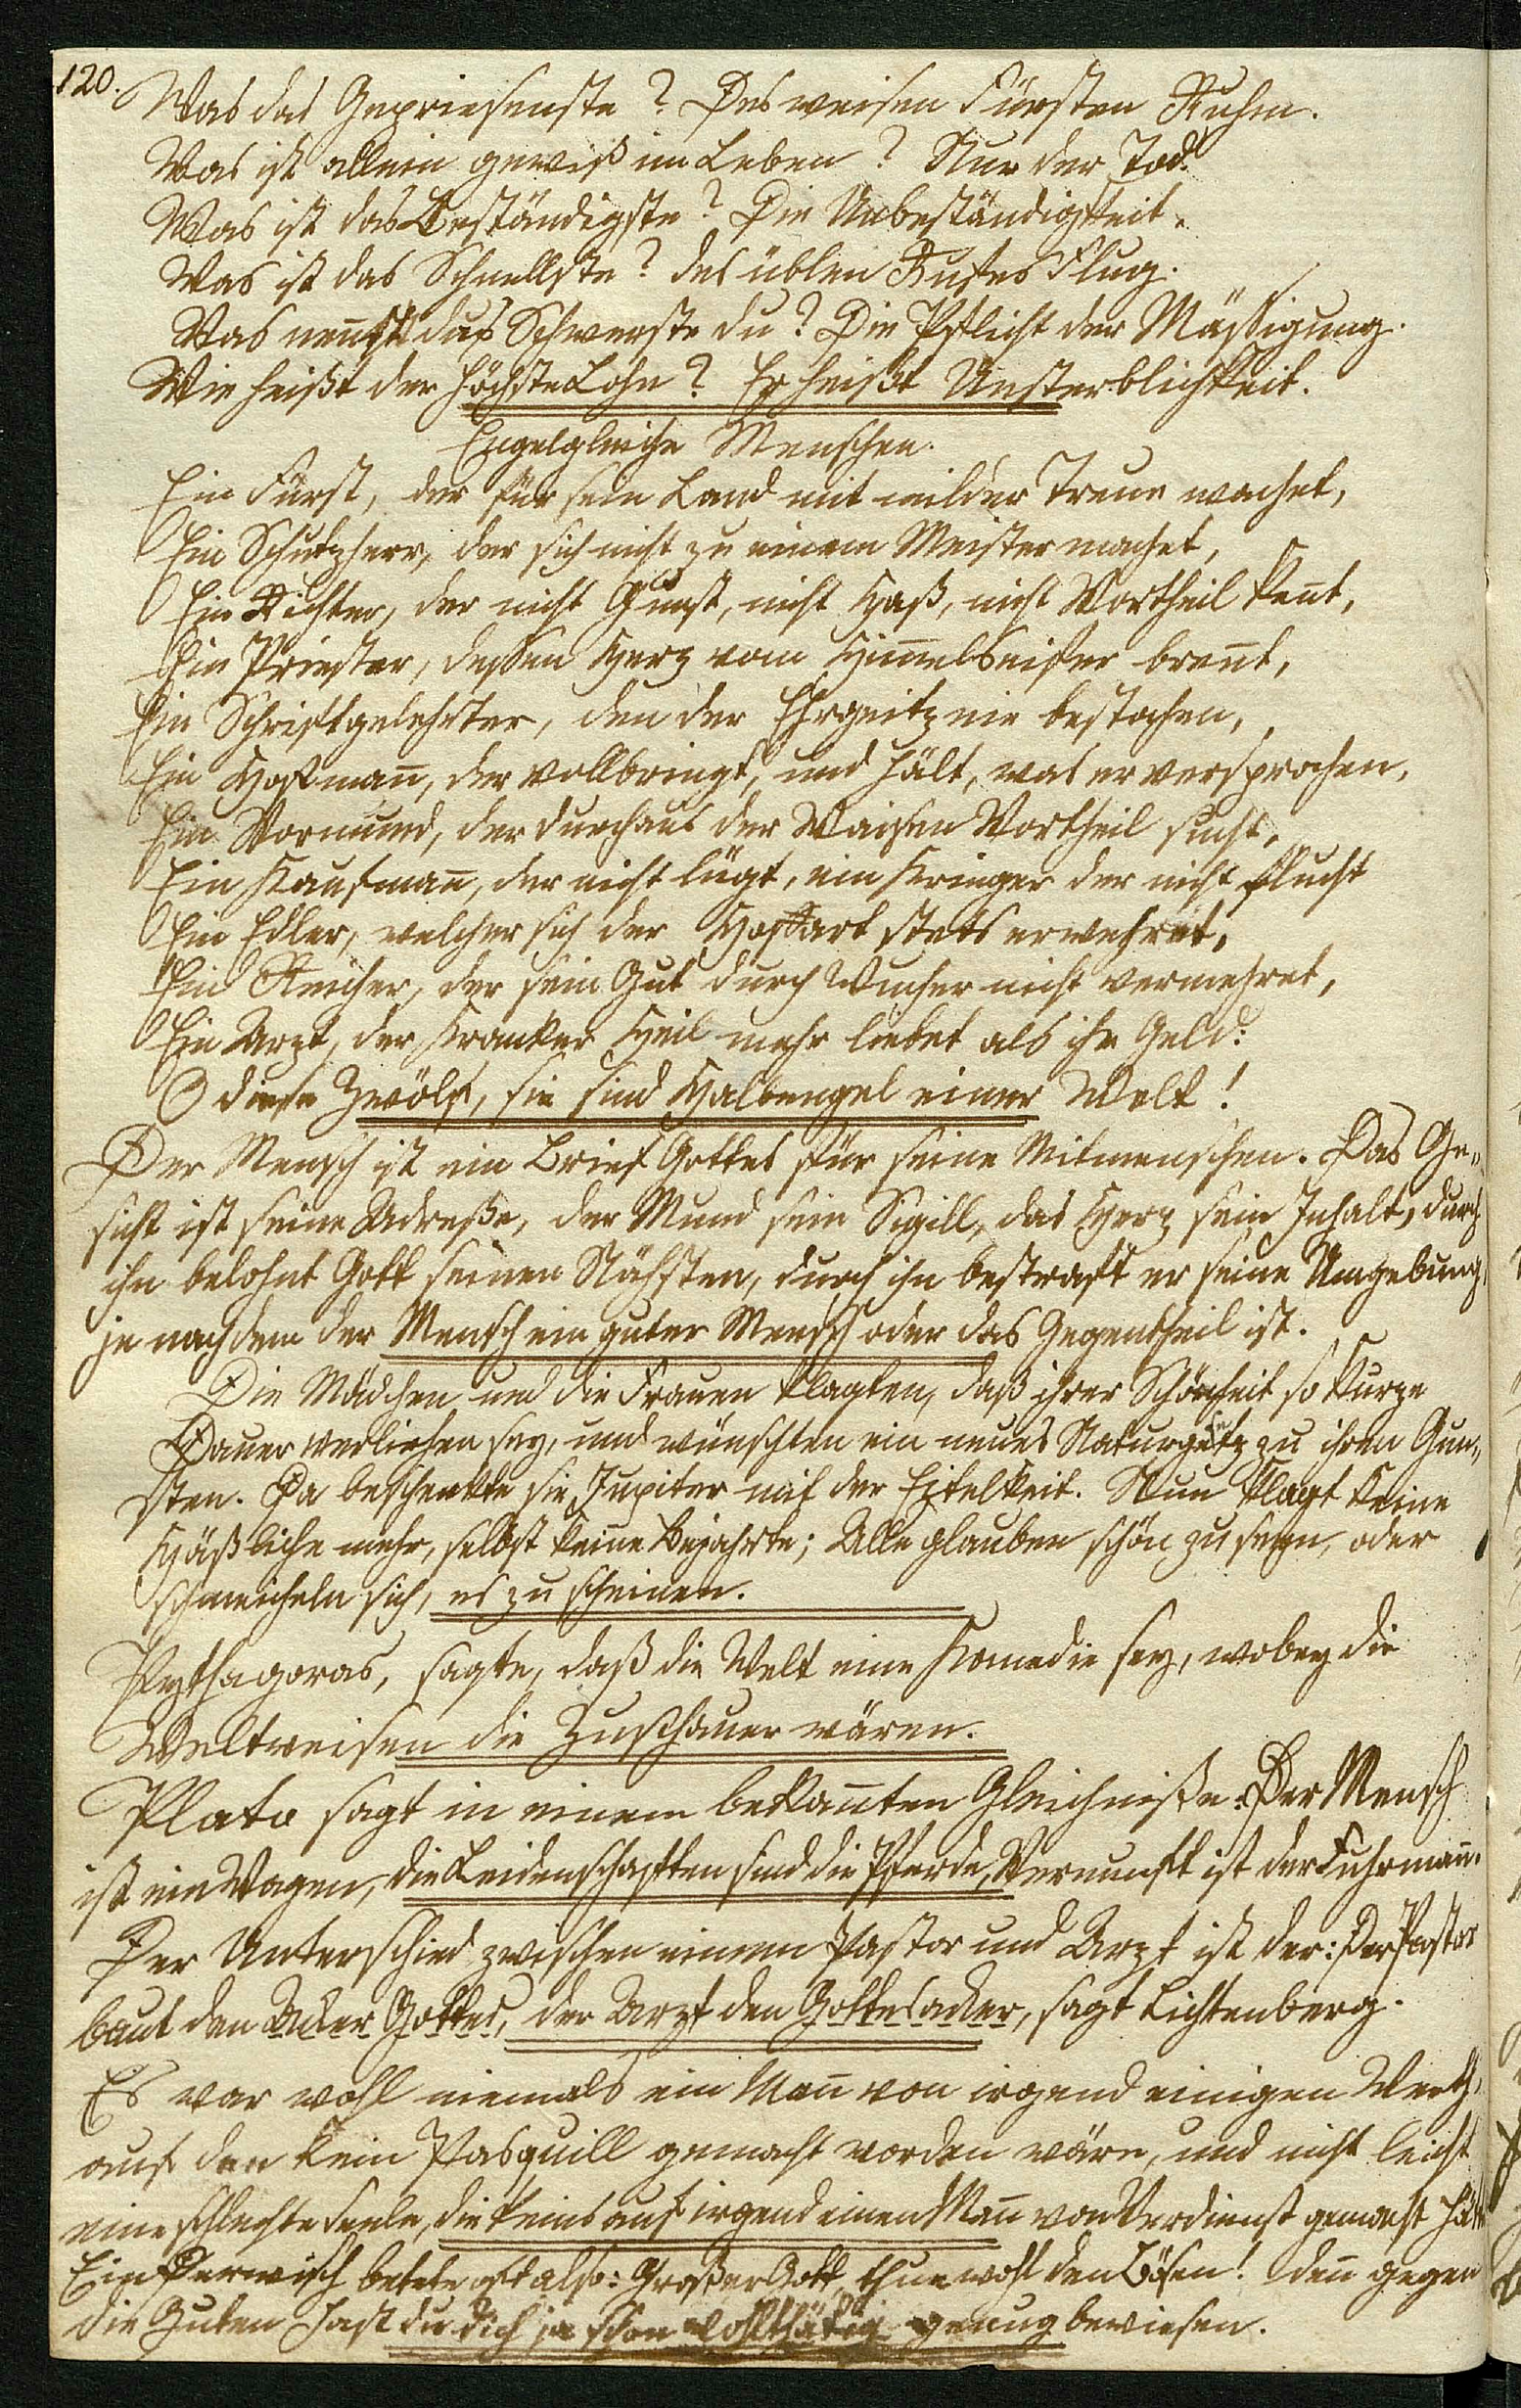 120.
Was das Gepriesenste? Des weisen Fürsten Ruhm.
Was ist allein gewiß im Leben? Nur der Tod.
Was ist das Beständigste? Die Unbeständigkeit.
Was ist das Schnellste? des üblen Rufes Flug.
Was nen̅st das Schwerste du? Die Pflicht der Mäßigung.
Wie heißt der höchste Lohn? Er heißt Unsterblichkeit.
Engelgleiche Menschen.
Ein Fürst, der für sein Land mit milder Treue wachet,
Ein Schutzherr, der sich nicht zu einem Meister machet,
Ein Richter, der nicht Gunst, nicht Haß, nicht Vortheil ken̅t,
Ein Priester, deßen Herz vom Him̅elseifer bren̅t,
Ein Schriftgelehrter, den der Ehrgeitz nie bestochen,
Ein Hofman̅, der vollbringt, und hält, was er versprochen,
Ein Vormund, der durchaus der Waisen Vortheil sucht,
Ein Kaufman̅, der nicht lügt, ein Krieger der nicht flucht
Ein Edler, welcher sich der Hoffart stets erwehret,
Ein Reicher, der sein Gut durch Wucher nicht vermehret,
Ein Arzt, der Kranker Heil mehr liebet als ihr Geld:
O diese Zwölf, sie sind Halbengel einer Welt!
Der Mensch ist ein Brief Gottes für seine Mitmenschen. Das Ge„
sicht ist seine Adreße, der Mund sein Sigill, das Herz sein Inhalt, durch
ihn belohnt Gott seinen Nächsten, durch ihn bestraft er seine Umgebung,
je nachdem der Mensch ein guter Mensch oder das Gegentheil ist.
Die Mädchen und die Frauen klagten, daß ihrer Schönheit so kurze
Dauer verliehen sey, und wünschten ein neues Naturgesetz zu ihren Gun„
sten. Da beschenkte sie Jupiter mit der Eitelkeit. Nun klagt keine
Häßliche mehr, selbst keine Bejahrte; Alle glauben schön zu seyn, oder
schmeicheln sich, es zu scheinen.
Pythagoras, sagte, daß die Welt eine Komedie sey, wobey die
Weltweisen die Zuschauer wären.
Plato sagt in einem bekan̅ten Gleichniße: Der Mensch
ist ein Wagen, die Leidenschaften sind die Pferde, Vernunft ist der Fuhrman̅.
Der Unterschied zwischen einem Pastor und Arzt ist der: Der Pastor
baut den Acker Gottes, der Arzt den Gottesacker, sagt Lichtenberg.
Es war wohl niemals ein Man̅ von irgend einigen Werth,
auf den kein Pasquill gemacht worden wäre, und nicht leicht
eine schlechte Seele, die keins auf irgend einen Man̅ von Verdienst gemacht hätte
Ein Derwisch betete oft also: Großer Gott, thue wohl den Bösen! den̅ gegen
die Guten hast du dich ja schon wohlthätig genug bewiesen.